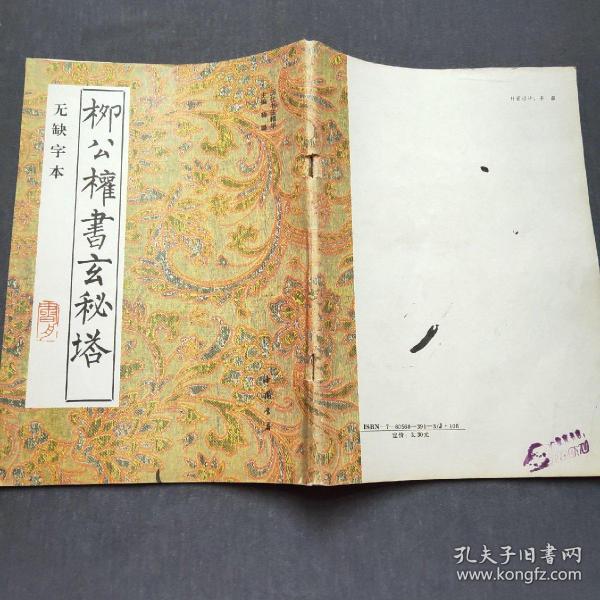 柳公權書玄秘塔
无缺字本
中國書店
ISBN-7-80568-391-3/J·108
定价：3.30元
孔夫子旧书网
www.kongfz.com